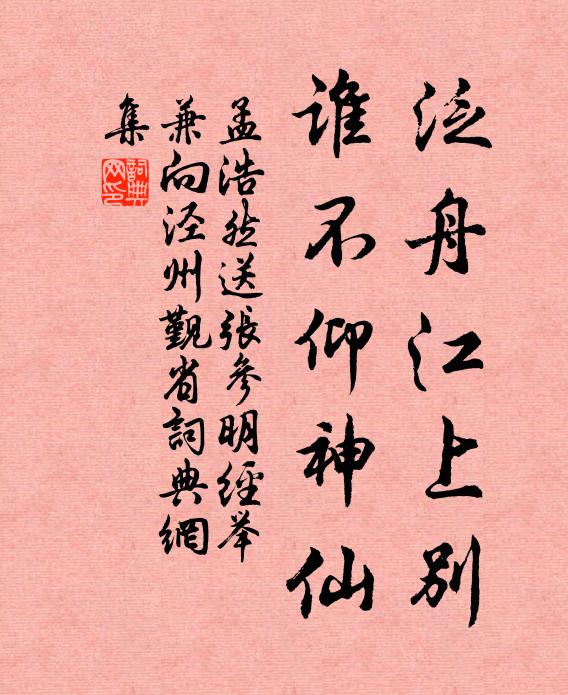 泛舟江上别
谁不仰神仙
孟浩然送張參明經举
兼向泾州覲省詞典網
集
詞典
网印